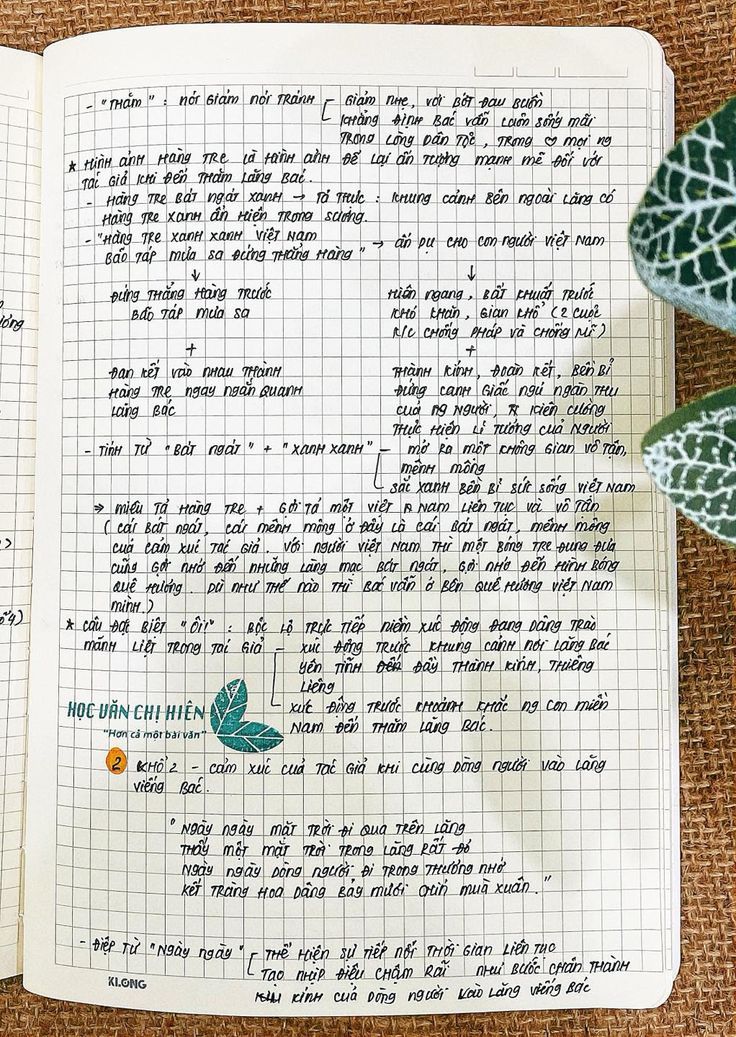 - "Thăm" : nói giảm nói tránh
giảm nhẹ, vơi bớt đau buồn
khẳng định Bác vẫn luôn sống mãi
trong lòng dân tộc, trong ♡ mọi ng
* Hình ảnh hàng tre là hình ảnh để lại ấn tượng mạnh mẽ đối với
tác giả khi đến thăm lăng Bác.
- Hàng tre bát ngát xanh → tả thực : khung cảnh bên ngoài lăng có
hàng tre xanh ẩn hiện trong sương.
- "Hàng tre xanh xanh Việt Nam
Bão táp mưa sa đứng thẳng hàng" → ẩn dụ cho con người Việt Nam
↓ ↓
Đứng thẳng hàng trước
bão táp mưa sa
Hiên ngang, bất khuất trước
khó khăn, gian khổ (2 cuộc
k/c chống Pháp và chống Mĩ)
+ +
Đan kết vào nhau thành
hàng tre ngay ngắn quanh
lăng Bác
Thành kính, đoàn kết, bền bỉ
đứng canh giấc ngủ ngàn thu
của ng Người, kiên cường
thực hiện lí tưởng của Người
- Tính từ "bát ngát" + "xanh xanh"
mở ra một không gian vô tận,
mênh mông
sắc xanh bền bỉ sức sống Việt Nam
⇒ miêu tả hàng tre + gợi tả một Việt Nam liên tục và vô tận
( cái bát ngát, cái mênh mông ở đây là cái bát ngát, mênh mông
của cảm xúc tác giả. Với người Việt Nam thì một bóng tre đung đưa
cũng gợi nhớ đến những lãng mạc bát ngát, gợi nhớ đến hình bóng
quê hương. Dù như thế nào thì Bác vẫn ở bên quê hương Việt Nam
mình.)
* Câu đặc biệt "Ôi!" : bộc lộ trực tiếp niềm xúc động đang dâng trào
mãnh liệt trong tác giả
xúc động trước khung cảnh nơi lăng Bác
yên tĩnh đầy thành kính, thiêng
liêng
xúc động trước khoảnh khắc ng con miền
Nam đến thăm lăng Bác.
HỌC VĂN CHỊ HIÊN
"Hơn cả một bài văn"
2 Khổ 2 - cảm xúc của tác giả khi cùng dòng người vào lăng
viếng Bác.
"Ngày ngày mặt trời đi qua trên lăng
Thấy một mặt trời trong lăng rất đỏ
Ngày ngày dòng người đi trong thương nhớ
Kết tràng hoa dâng bảy mươi chín mùa xuân."
- Điệp từ "Ngày ngày"
thể hiện sự tiếp nối thời gian liên tục
tạo nhịp điệu chậm rãi như bước chân thành
kính của dòng người vào lăng viếng Bác
KLONG